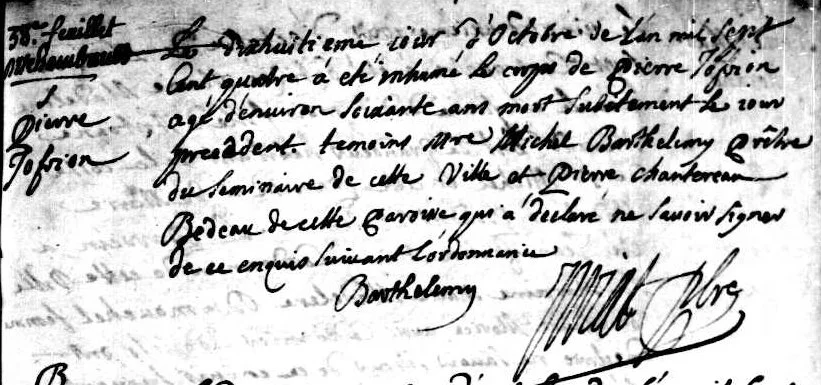 38e. feuillet
S
Pierre
Jofrion
Le dixhuitieme iour d'Octobre de l'an mil sept
Cent quatre à eté inhumé le corps de Pierre Jofrion
agé d'environ Soixante ans mort Subitement le iour
precedent temoins Mre Michel Barthelemy prêtre
du Seminaire de cette Ville et Pierre chantereau
Bedeau de cette paroisse qui à declaré ne savoir signer
de ce enquis suivant l'ordonnance
Barthelemy
pbre